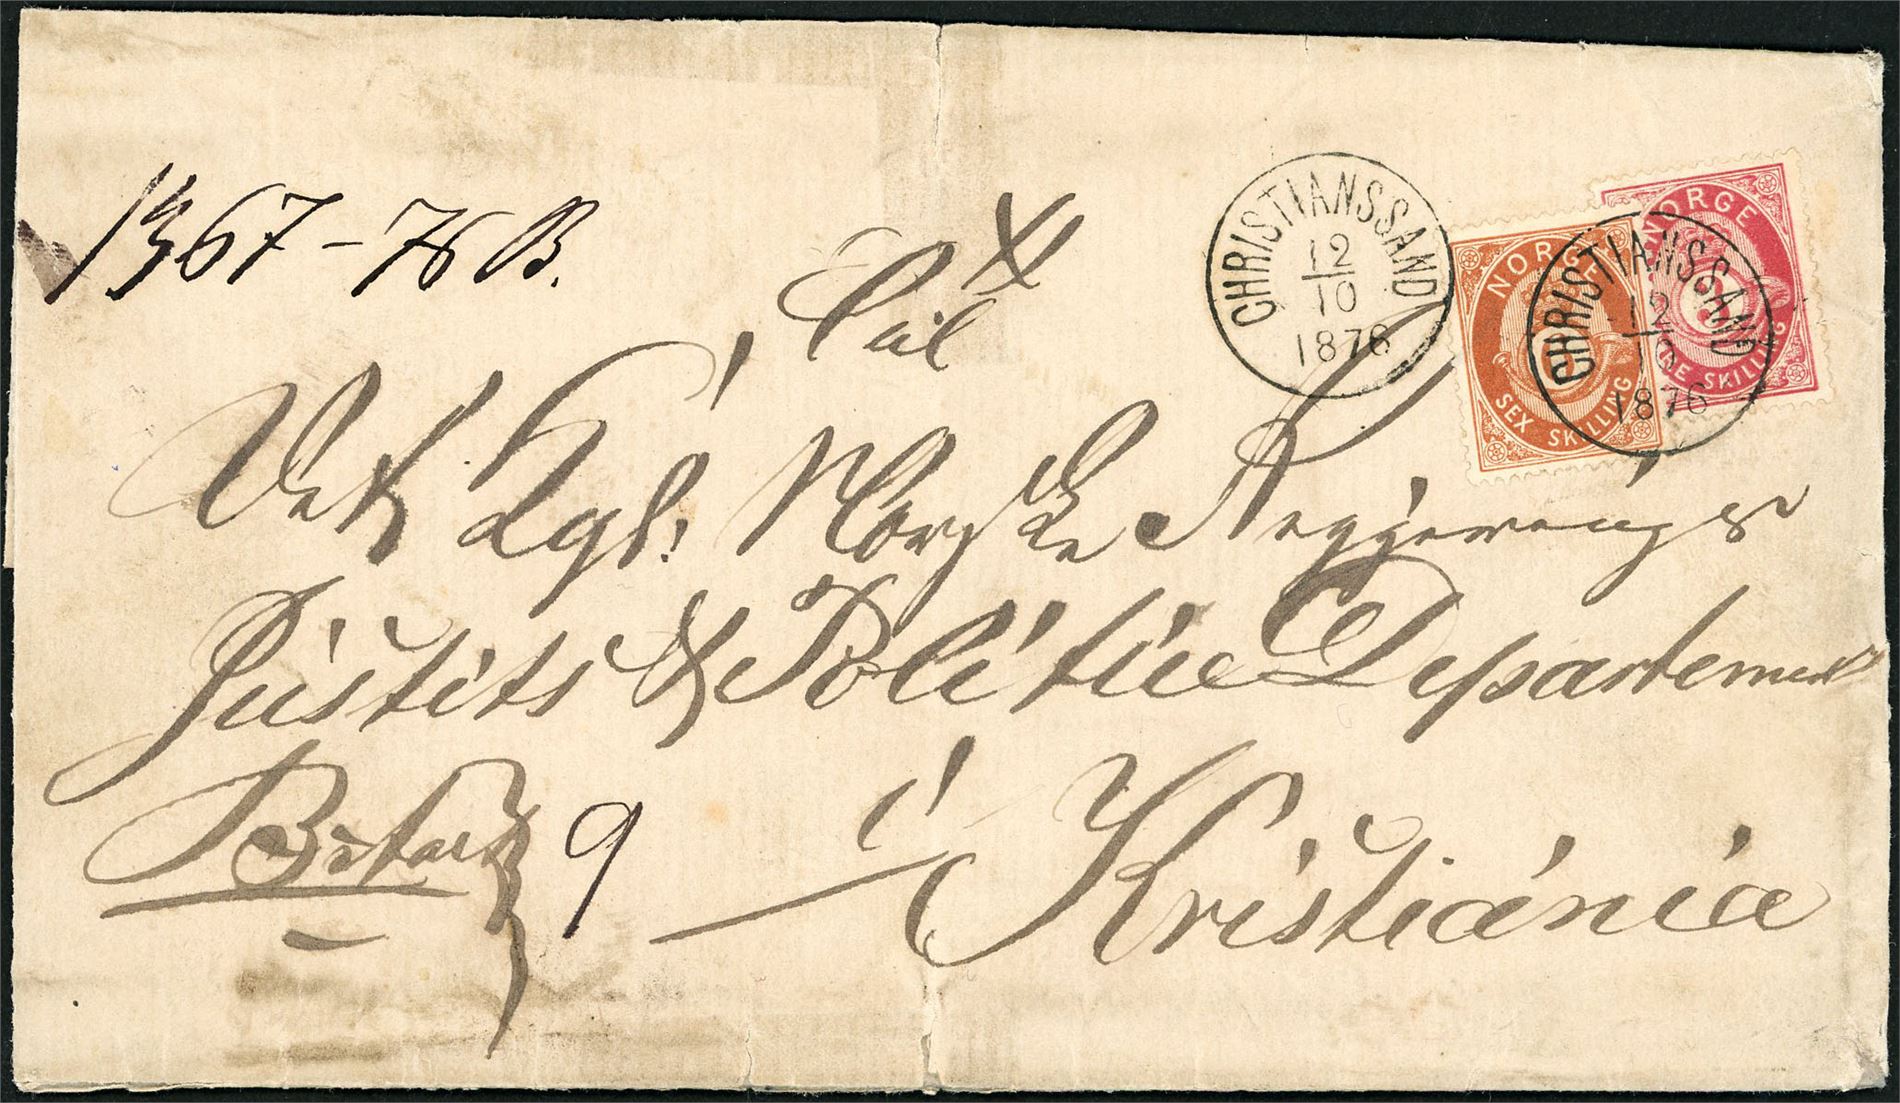 1367-76 B.
Til
Det Kgl. Norske Regjerings
Justits & Politie Departement
Betalt 9
i Kristiania
CHRISTIANSSAND
12
10
1876
NORGE
SEX SKILLING
CHRISTIANSSAND
12
10
1876
NORGE
SKILLING